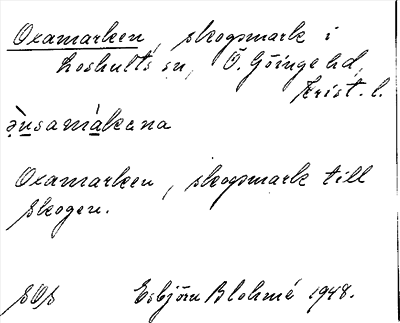 Oxamarken, skogsmark i
Loshults sn, Ö. Göinge hd,
Krist. l.
Oxamarken, skogsmark till
skogen.
SOS Esbjörn Blohmé 1948.